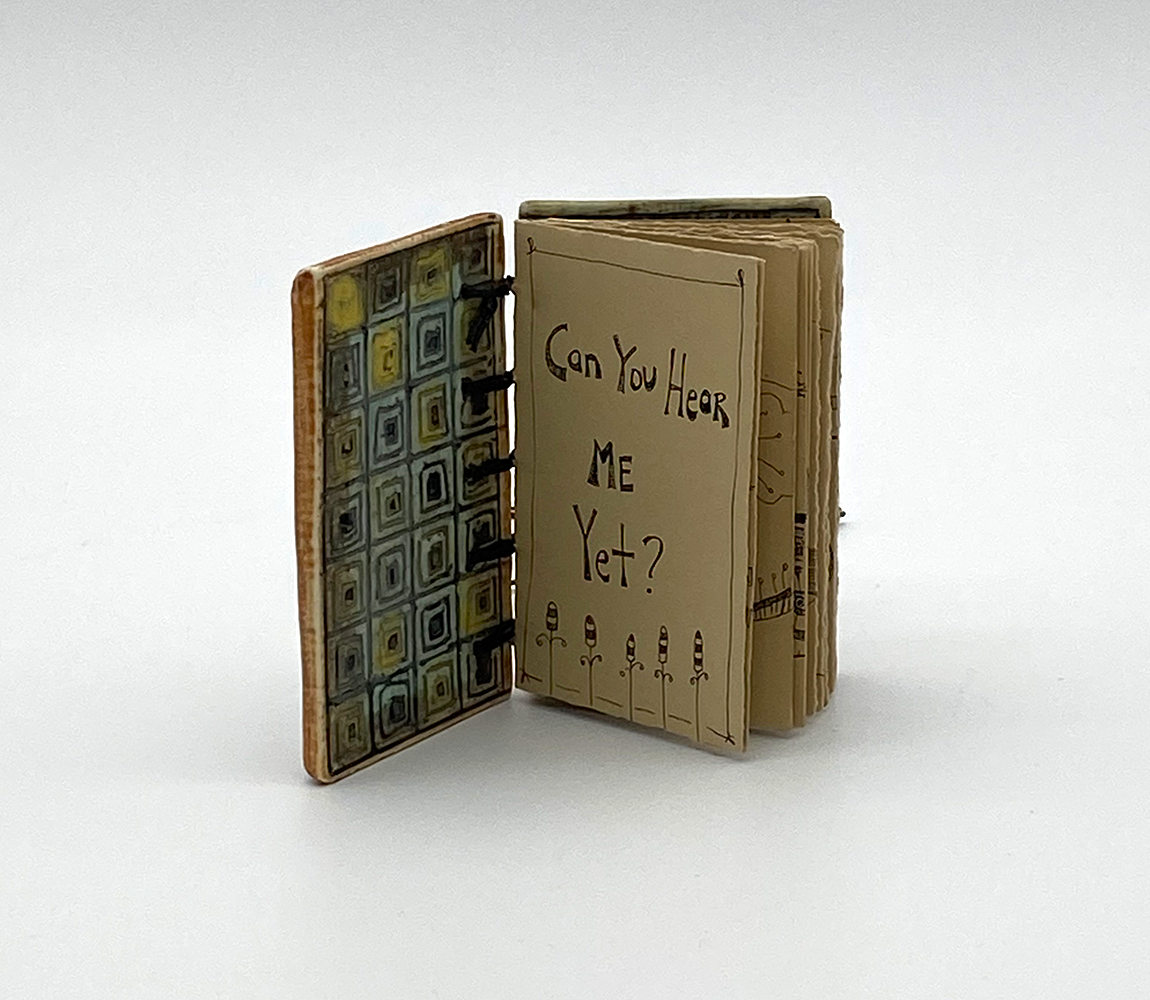 Can You Hear
Me
Yet?